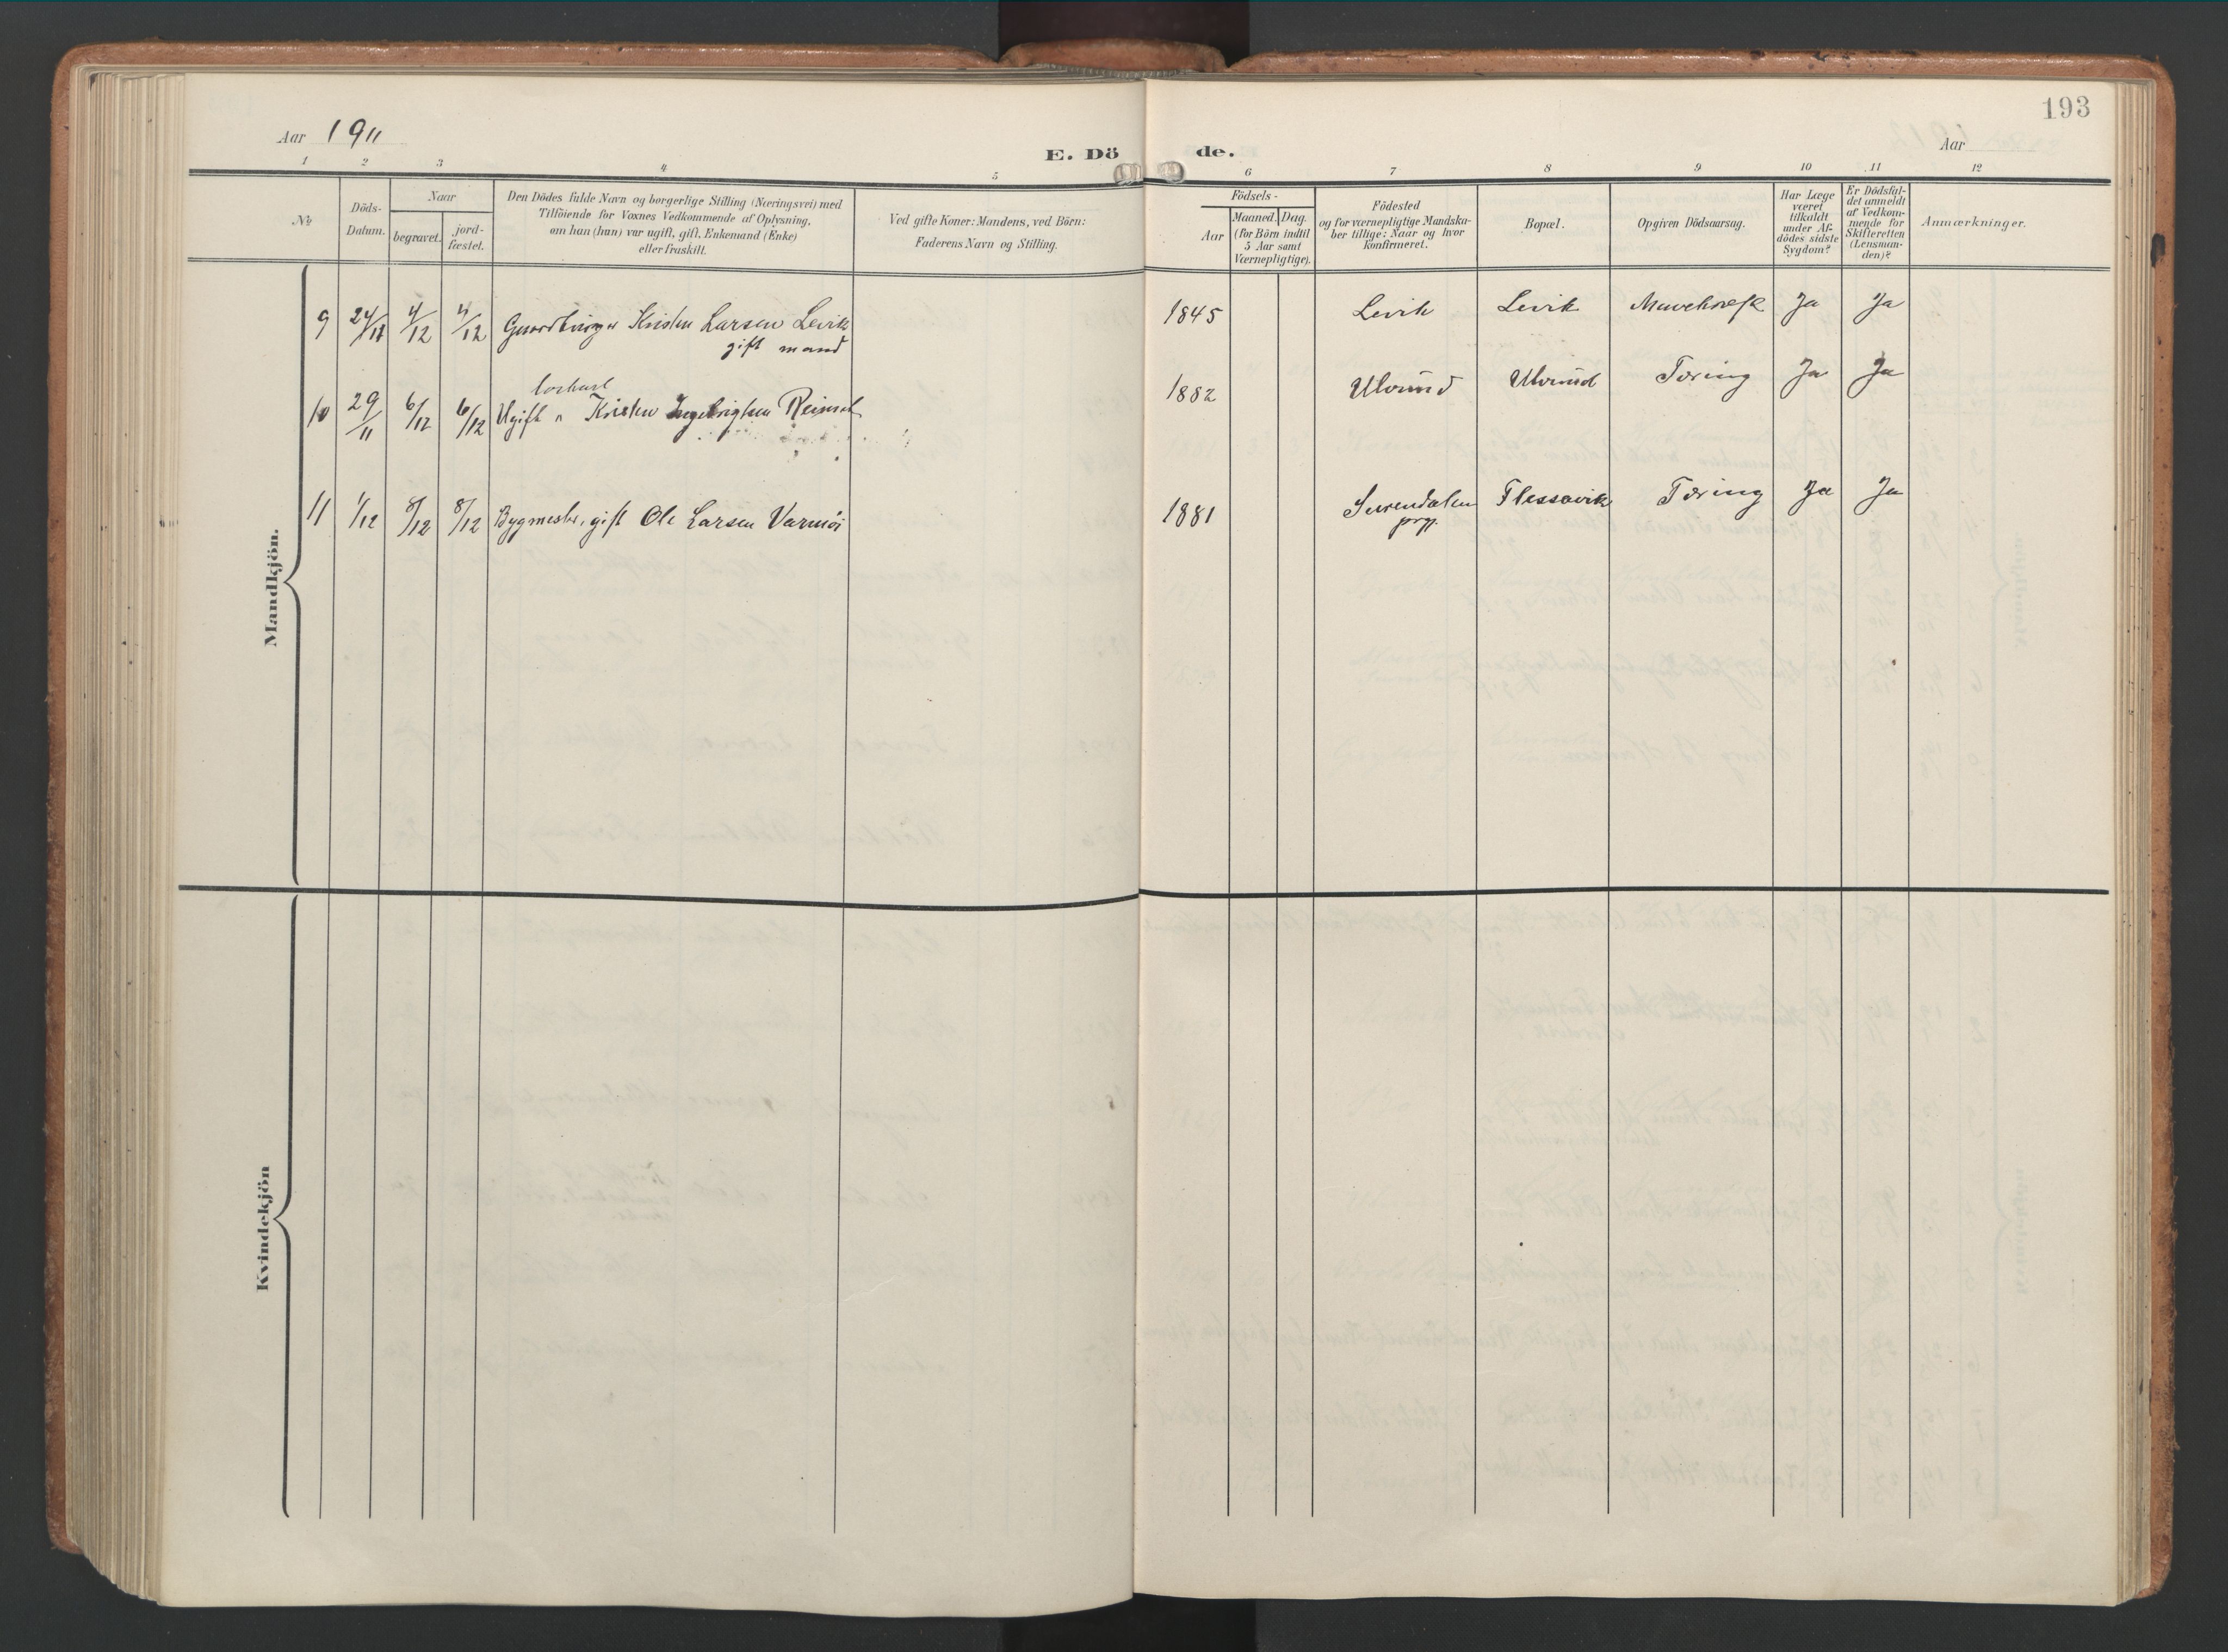 193
Aar 1911
E. Dö de.
Aar
1 2 3 4 5 6 7 8 9 10 11 12
No
Döds-
Datum.
Naar
begravet.
jord-
fæstet.
Den Dödes fulde Navn og borgerlige Stilling (Næringsvei) med
Tilföiende for Voxnes Vedkommende af Oplysning,
om han (hun) var ugift, gift, Enkemand (Enke)
eller fraskilt.
Ved gifte Koner: Mandens, ved Börn:
Faderens Navn og Stilling.
Födsels-
Aar
Maaned. Dag.
(for Börn indtil
5 Aar samt
Værnepligtige).
Födested
og for værnepligtige Mandska-
ber tillige: Naar og hvor
konfirmeret.
Bopæl.
Opgiven Dödsaarsag.
Har Læge
været
tilkaldt
under Af-
dödes sidste
Sygdom?
Er Dödsfal-
det anmeldt
af Vedkom-
mende for
Skifteretten
(Lensman-
den)?
Anmærkninger.
Mandkjön.
9 24/11 4/12 4/12 Gaardbruger Kristen Larsen Levik 1845 Levik Levik Mavekræft Ja Ja
gift mand
10 29/11 6/12 6/12 Ugift Kristen Ingebrigtsen 1882 Ulvund Ulvund Tæring Ja Ja
11 1/12 8/12 8/12 Bygmester, gift Ole Larsen Varmöi 1881 Surendalen Flessavik Tæring Ja Ja
prgj.
Kvindekjön